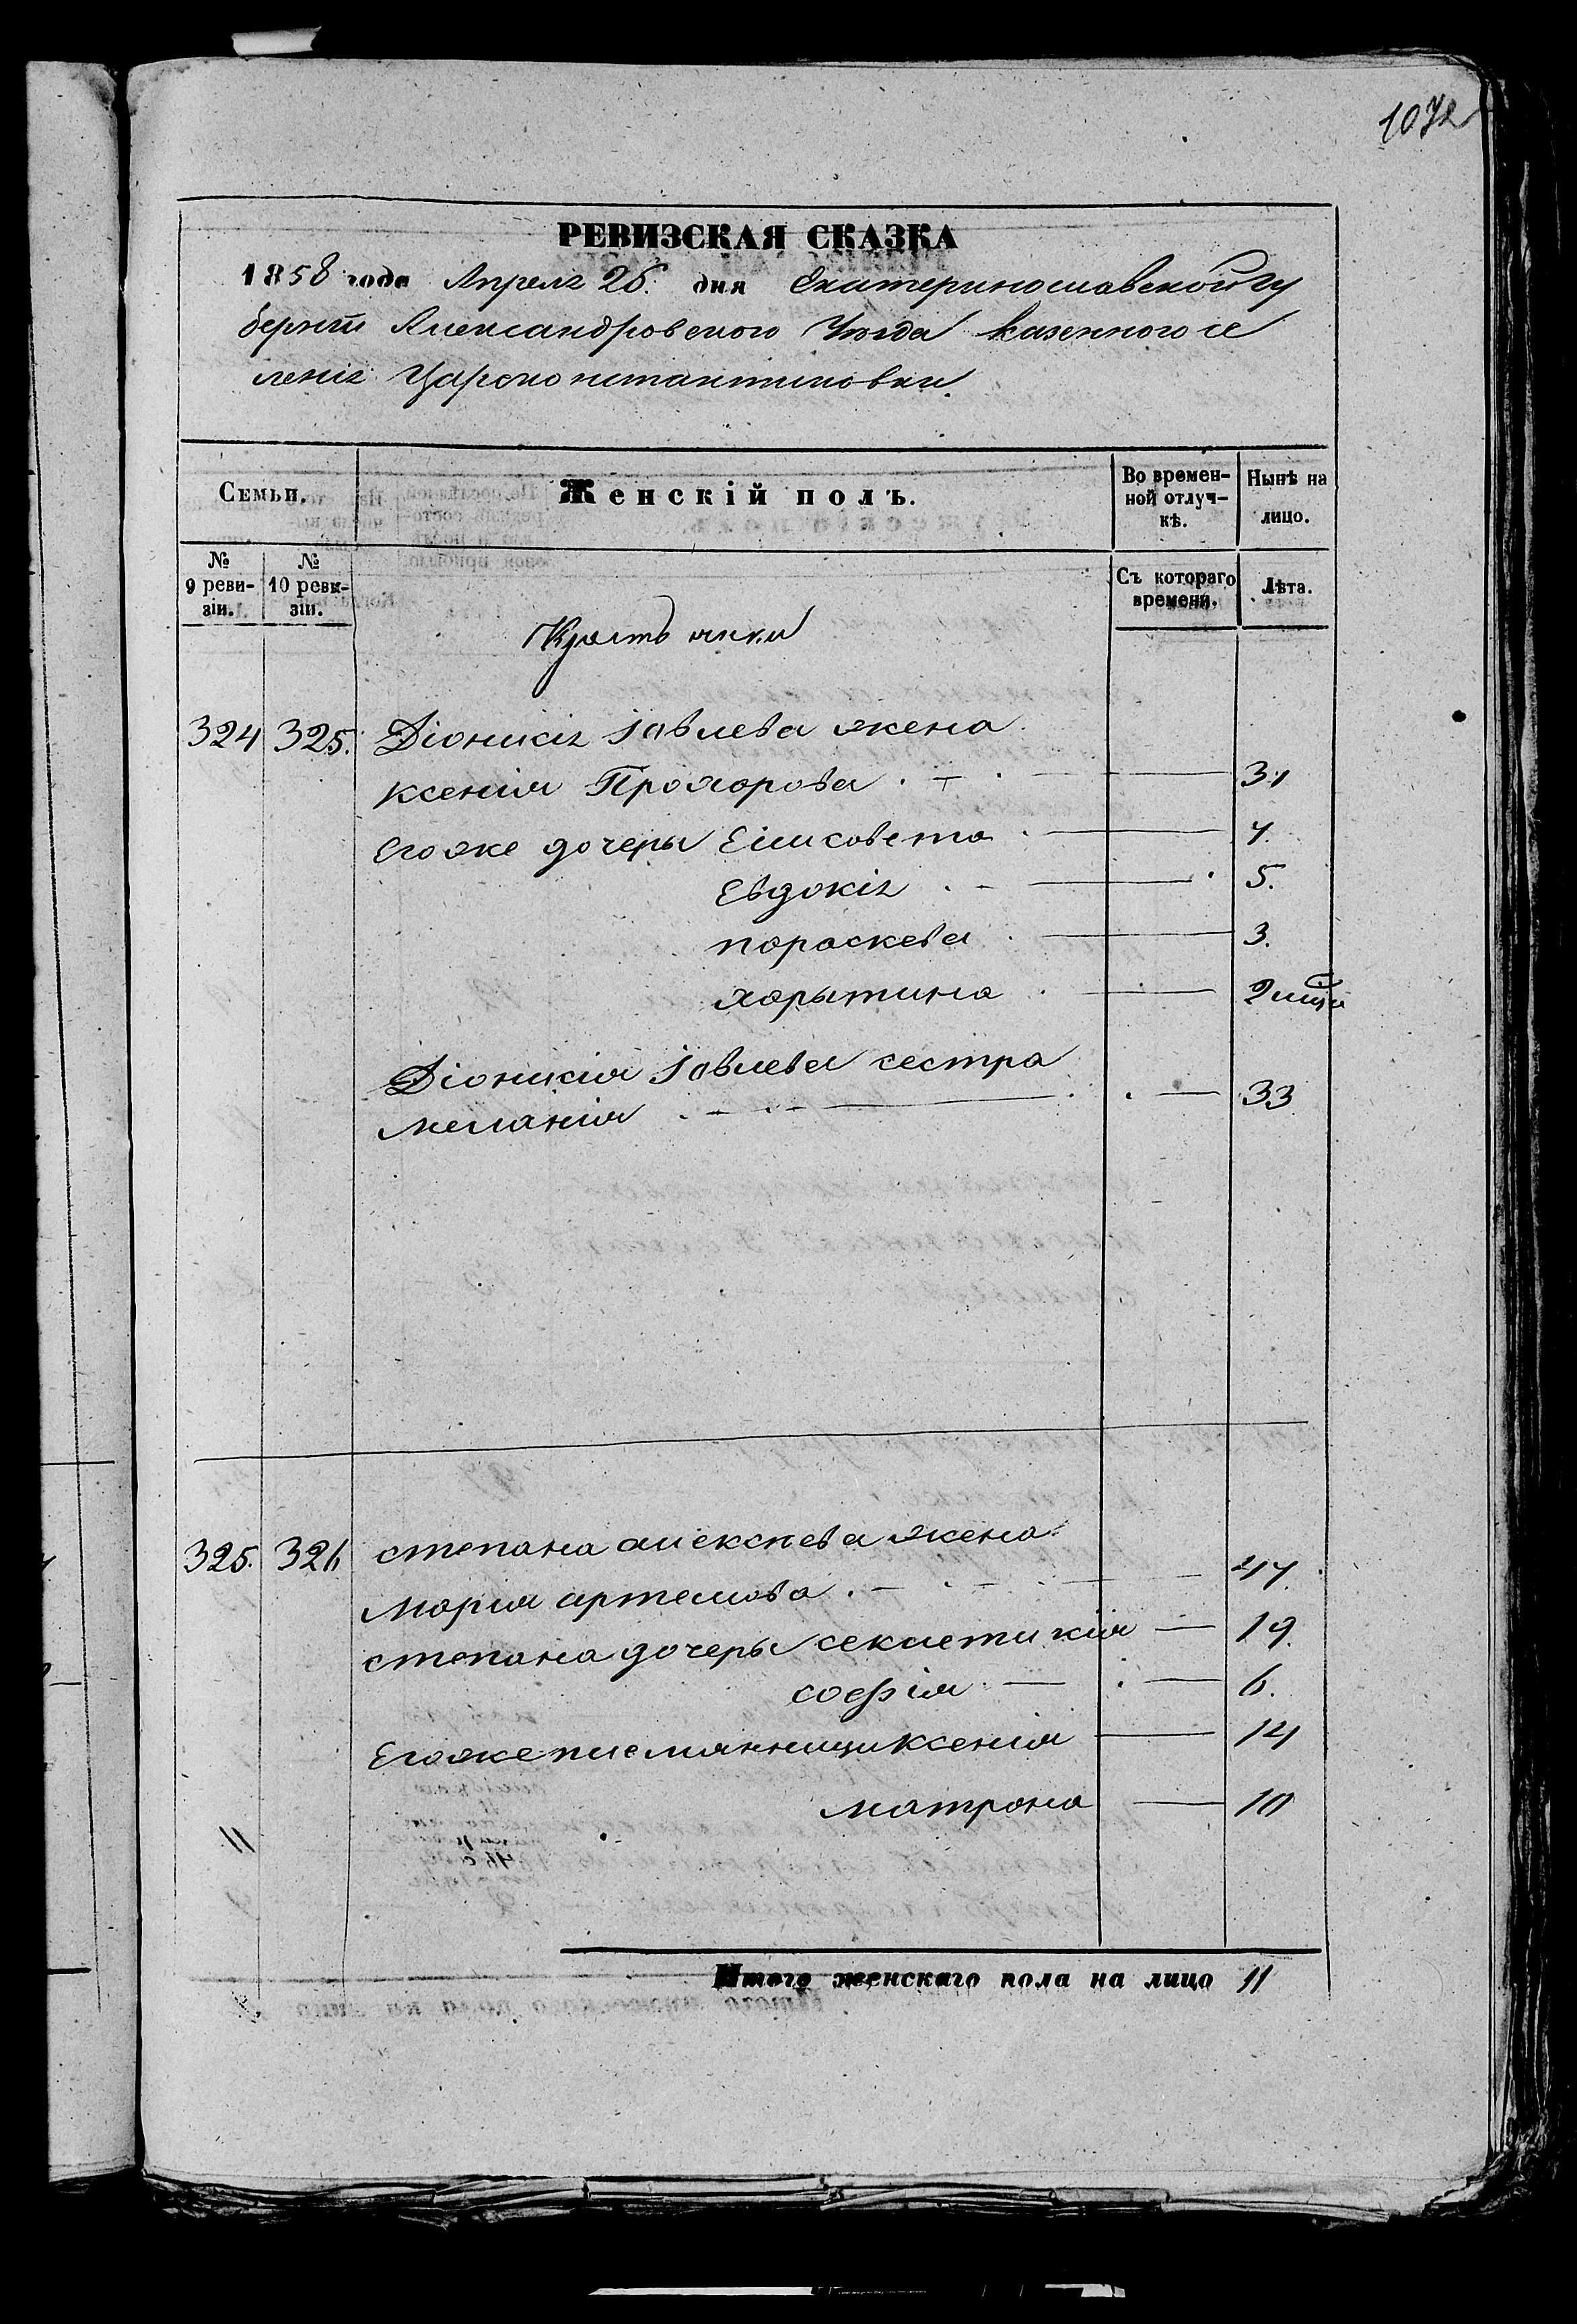 1072
РЕВИЗСКАЯ СКАЗКА
1858 года Апреля 26. дня Екатеринославской гу
берніи Александровского Уезда казенного се
ленія Царэконстантиновки.
Семьи.
Женскій полъ.
Во времен-
ной отлуч-
кѣ.
Нынѣ на
лицо.
№
9 реви-
зіи.
№
10 реви-
зіи.
Съ котораго
времени.
Лѣта.
324 325. Діонисія Іовлева жена
Ксенія Прохорова 31
Егоже дочеры Елисовета 7.
Евдокія 5.
пораскева 3.
харытина 2 
Діонисія Іовлева сестра
меланія 33
325. 326 степана алексѣева жена
Марія артемова 47.
степана дочеры секлетикія 19.
софія 6.
Егоже племянницы Ксенія 14
матрона 10
Итого женскаго пола на лицо 11